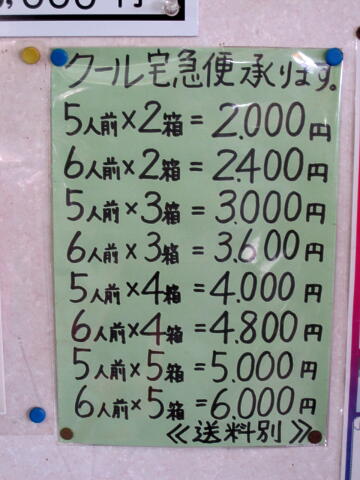 クール宅急便承ります。
5人前×2箱=2.000円
6人前×2箱=2.400円
5人前×3箱=3.000円
6人前×3箱=3.600円
5人前×4箱=4.000円
6人前×4箱=4.800円
5人前×5箱=5.000円
6人前×5箱=6.000円
≪送料別≫